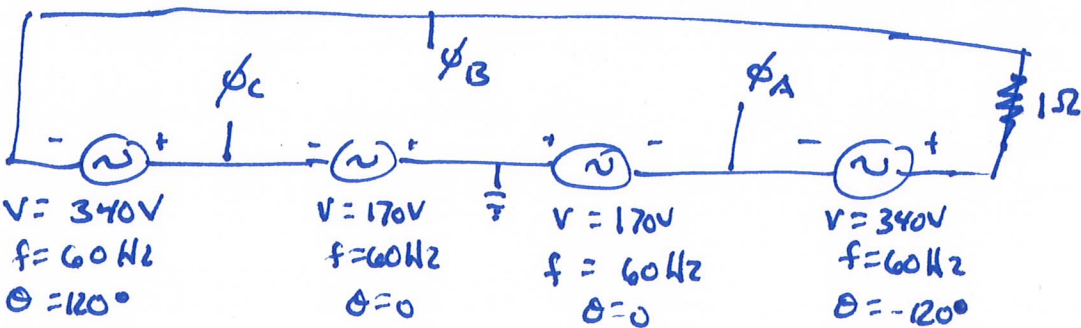 φB
φC
φA
1Ω
- +
- +
+ -
- +
V= 340V
f= 60Hz
θ=120°
V=170V
f=60Hz
θ=0
V=170V
f= 60Hz
θ=0
V=340V
f=60Hz
θ=-120°